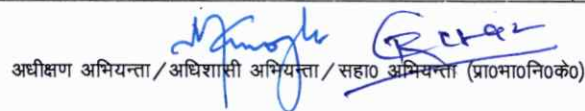 अधीक्षण अभियन्ता/अधिशासी अभियन्ता/सहा० अभियन्ता (प्रा०भा०नि०के०)